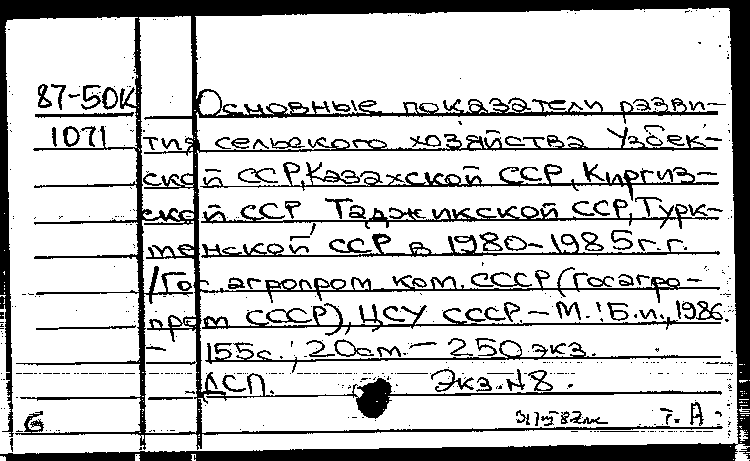 87-50К Основные показатели разви-
1071 тия сельского хозяйства Узбек-
ской ССР, Казахской ССР, Киргиз-
ской ССР, Таджикской ССР, Турк-
менской ССР в 1980-1985 г.г.
/Гос. агропром. ком. СССР (Госагро-
пром СССР), ЦСУ СССР. - М.: Б.и., 1986.
- 155с.; 20см. - 250 экз.
ДСП. Экз. № 8.
Б т. А.